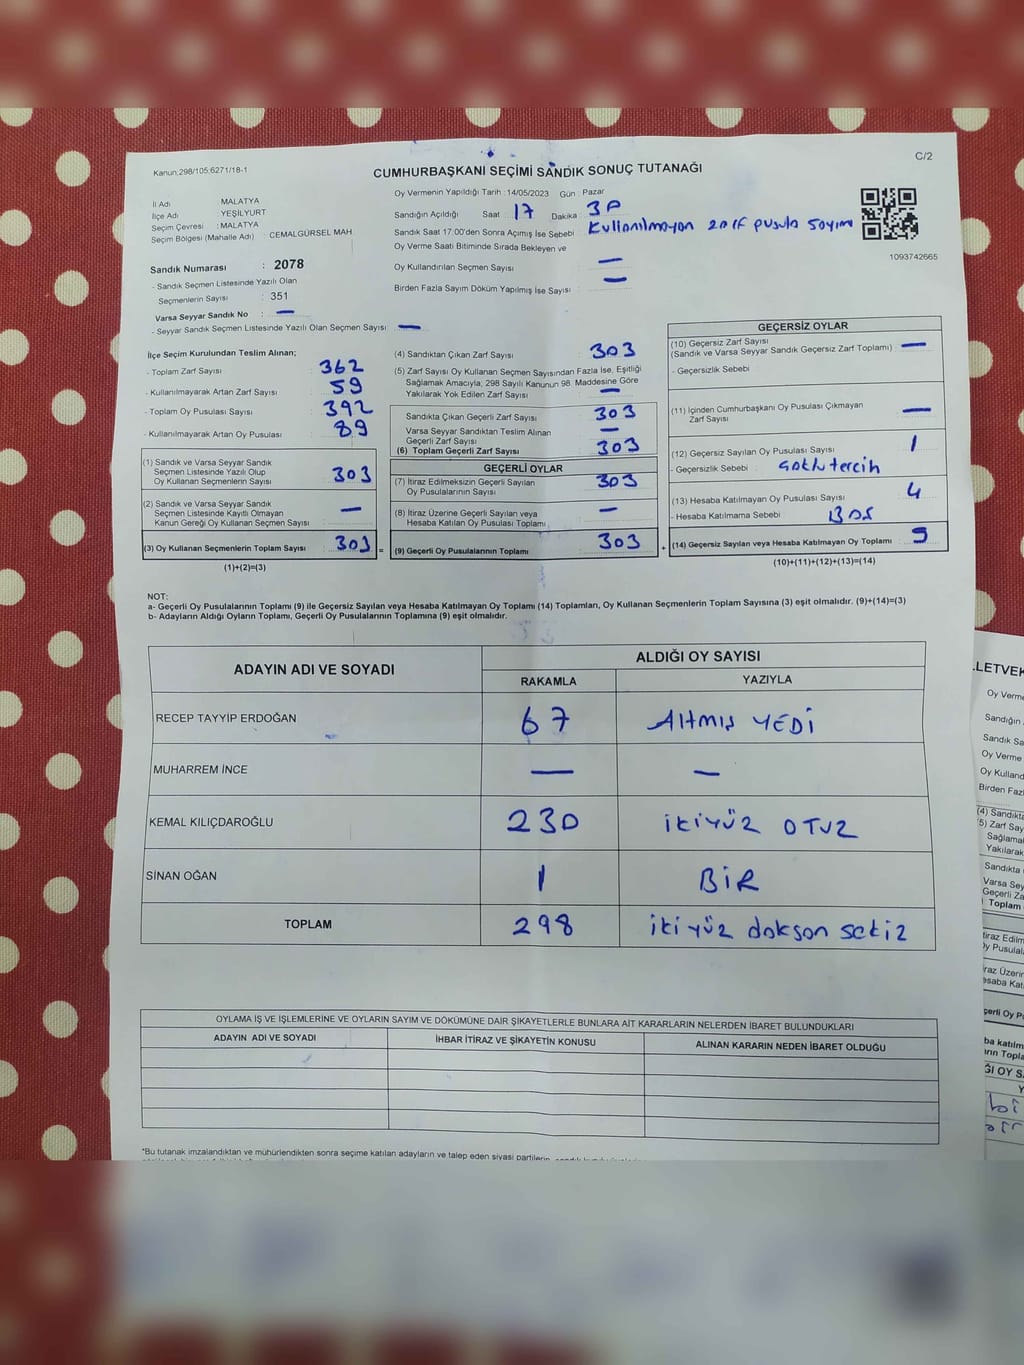 Kanun:298/105,6271/18-1
C/2
CUMHURBAŞKANI SEÇİMİ SANDIK SONUÇ TUTANAĞI
İl Adı MALATYA
İlçe Adı : YEŞİLYURT
Seçim Çevresi : MALATYA
Seçim Bölgesi (Mahalle Adı) : CEMALGÜRSEL MAH
Sandık Numarası : 2078
- Sandık Seçmen Listesinde Yazılı Olan
Seçmenlerin Sayısı : 351
Varsa Seyyar Sandık No : —
- Seyyar Sandık Seçmen Listesinde Yazılı Olan Seçmen Sayısı : —
Oy Vermenin Yapıldığı Tarih : 14/05/2023 Gün : Pazar
Sandığın Açıldığı Saat 17 Dakika 30
Sandık Saat 17:00'den Sonra Açımış İse Sebebi Kullanılmayan zarf pusula sayımı
Oy Verme Saati Bitiminde Sırada Bekleyen ve
Oy Kullandırılan Seçmen Sayısı —
Birden Fazla Sayım Döküm Yapılmış İse Sayısı —
1093742665
İlçe Seçim Kurulundan Teslim Alınan;
- Toplam Zarf Sayısı : 362
- Kullanılmayarak Artan Zarf Sayısı : 59
- Toplam Oy Pusulası Sayısı : 392
- Kullanılmayarak Artan Oy Pusulası : 89
(1) Sandık ve Varsa Seyyar Sandık
Seçmen Listesinde Yazılı Olup
Oy Kullanan Seçmenlerin Sayısı : 303
(2) Sandık ve Varsa Seyyar Sandık
Seçmen Listesinde Kayıtlı Olmayan
Kanun Gereği Oy Kullanan Seçmen Sayısı : —
(3) Oy Kullanan Seçmenlerin Toplam Sayısı : 303 =
(1)+(2)=(3)
(4) Sandıktan Çıkan Zarf Sayısı 303
(5) Zarf Sayısı Oy Kullanan Seçmen Sayısından Fazla İse, Eşitliği
Sağlamak Amacıyla, 298 Sayılı Kanunun 98. Maddesine Göre
Yakılarak Yok Edilen Zarf Sayısı —
Sandıkta Çıkan Geçerli Zarf Sayısı 303
Varsa Seyyar Sandıktan Teslim Alınan
Geçerli Zarf Sayısı —
(6) Toplam Geçerli Zarf Sayısı 303
GEÇERLİ OYLAR
(7) İtiraz Edilmeksizin Geçerli Sayılan
Oy Pusulalarının Sayısı 303
(8) İtiraz Üzerine Geçerli Sayılan veya
Hesaba Katılan Oy Pusulası Toplamı —
(9) Geçerli Oy Pusulalarının Toplamı 303 +
GEÇERSİZ OYLAR
(10) Geçersiz Zarf Sayısı
(Sandık ve Varsa Seyyar Sandık Geçersiz Zarf Toplamı) —
- Geçersizlik Sebebi
(11) İçinden Cumhurbaşkanı Oy Pusulası Çıkmayan
Zarf Sayısı —
(12) Geçersiz Sayılan Oy Pusulası Sayısı 1
- Geçersizlik Sebebi : çoklu tercih
(13) Hesaba Katılmayan Oy Pusulası Sayısı 4
- Hesaba Katılmama Sebebi : Boş
(14) Geçersiz Sayılan veya Hesaba Katılmayan Oy Toplamı 5
(10)+(11)+(12)+(13)=(14)
NOT:
a- Geçerli Oy Pusulalarının Toplamı (9) ile Geçersiz Sayılan veya Hesaba Katılmayan Oy Toplamı (14) Toplamları, Oy Kullanan Seçmenlerin Toplam Sayısına (3) eşit olmalıdır. (9)+(14)=(3)
b- Adayların Aldığı Oyların Toplamı, Geçerli Oy Pusulalarının Toplamına (9) eşit olmalıdır.
ADAYIN ADI VE SOYADI ALDIĞI OY SAYISI
RAKAMLA YAZIYLA
RECEP TAYYİP ERDOĞAN 67 Altmış YEDİ
MUHARREM İNCE — —
KEMAL KILIÇDAROĞLU 230 ikiyüz OTUZ
SİNAN OĞAN 1 BİR
TOPLAM 298 ikiyüz doksan sekiz
OYLAMA İŞ VE İŞLEMLERİNE VE OYLARIN SAYIM VE DÖKÜMÜNE DAİR ŞİKAYETLERLE BUNLARA AİT KARARLARIN NELERDEN İBARET BULUNDUKLARI
ADAYIN ADI VE SOYADI İHBAR İTİRAZ VE ŞİKAYETİN KONUSU ALINAN KARARIN NEDEN İBARET OLDUĞU
*Bu tutanak imzalandıktan ve mühürlendikten sonra seçime katılan adayların ve talep eden siyasi partilerin,